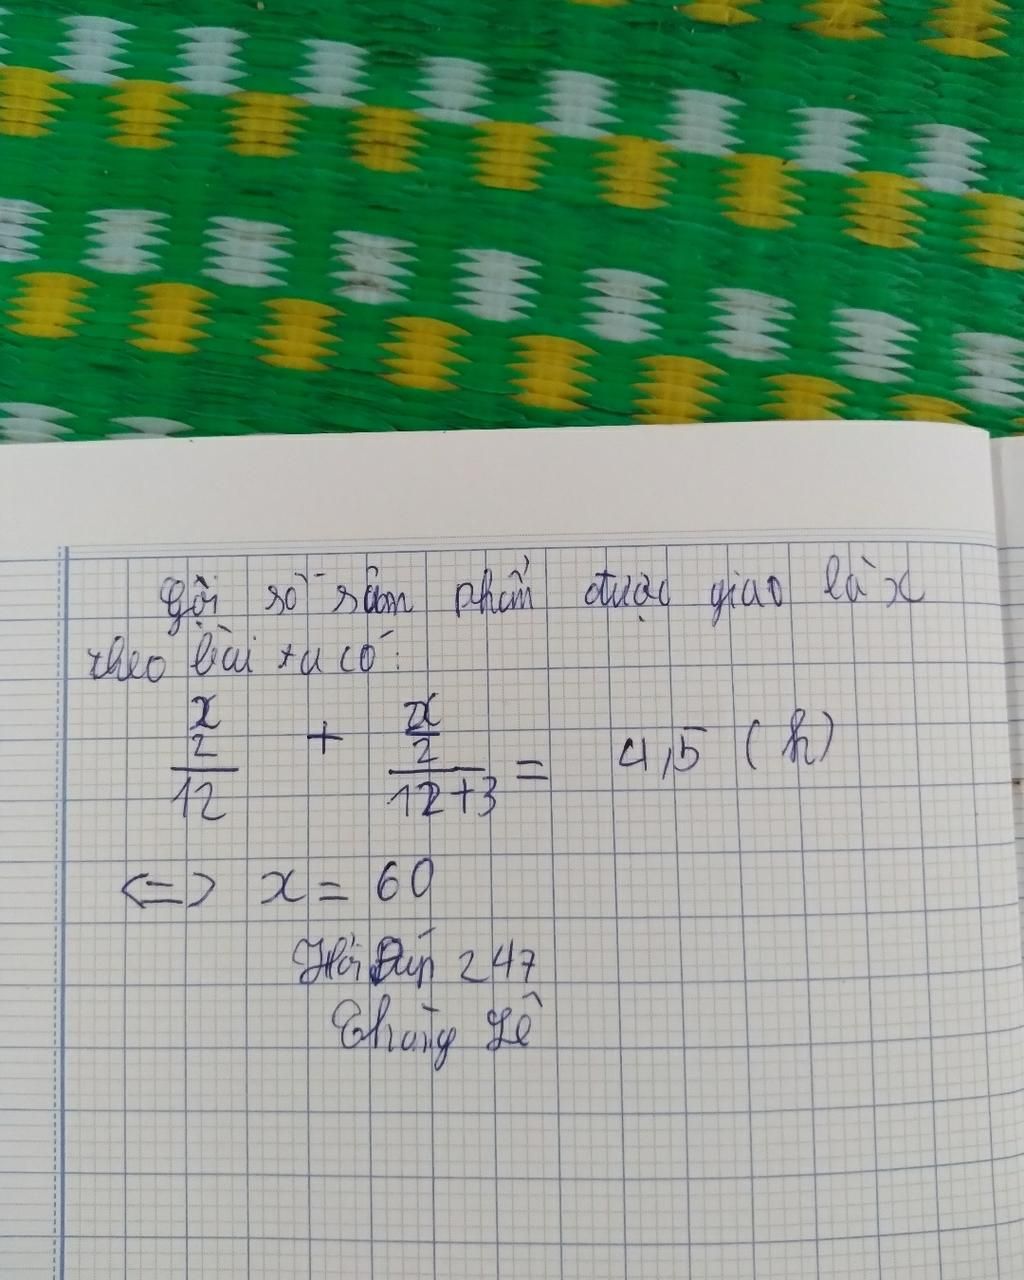 Gọi số sản phẩm được giao là x
theo bài ta có:
x/2/12 + x/2/12+3 = 4,5 (h)
<=> x = 60
Hỏi Đáp 247
Chung Lê